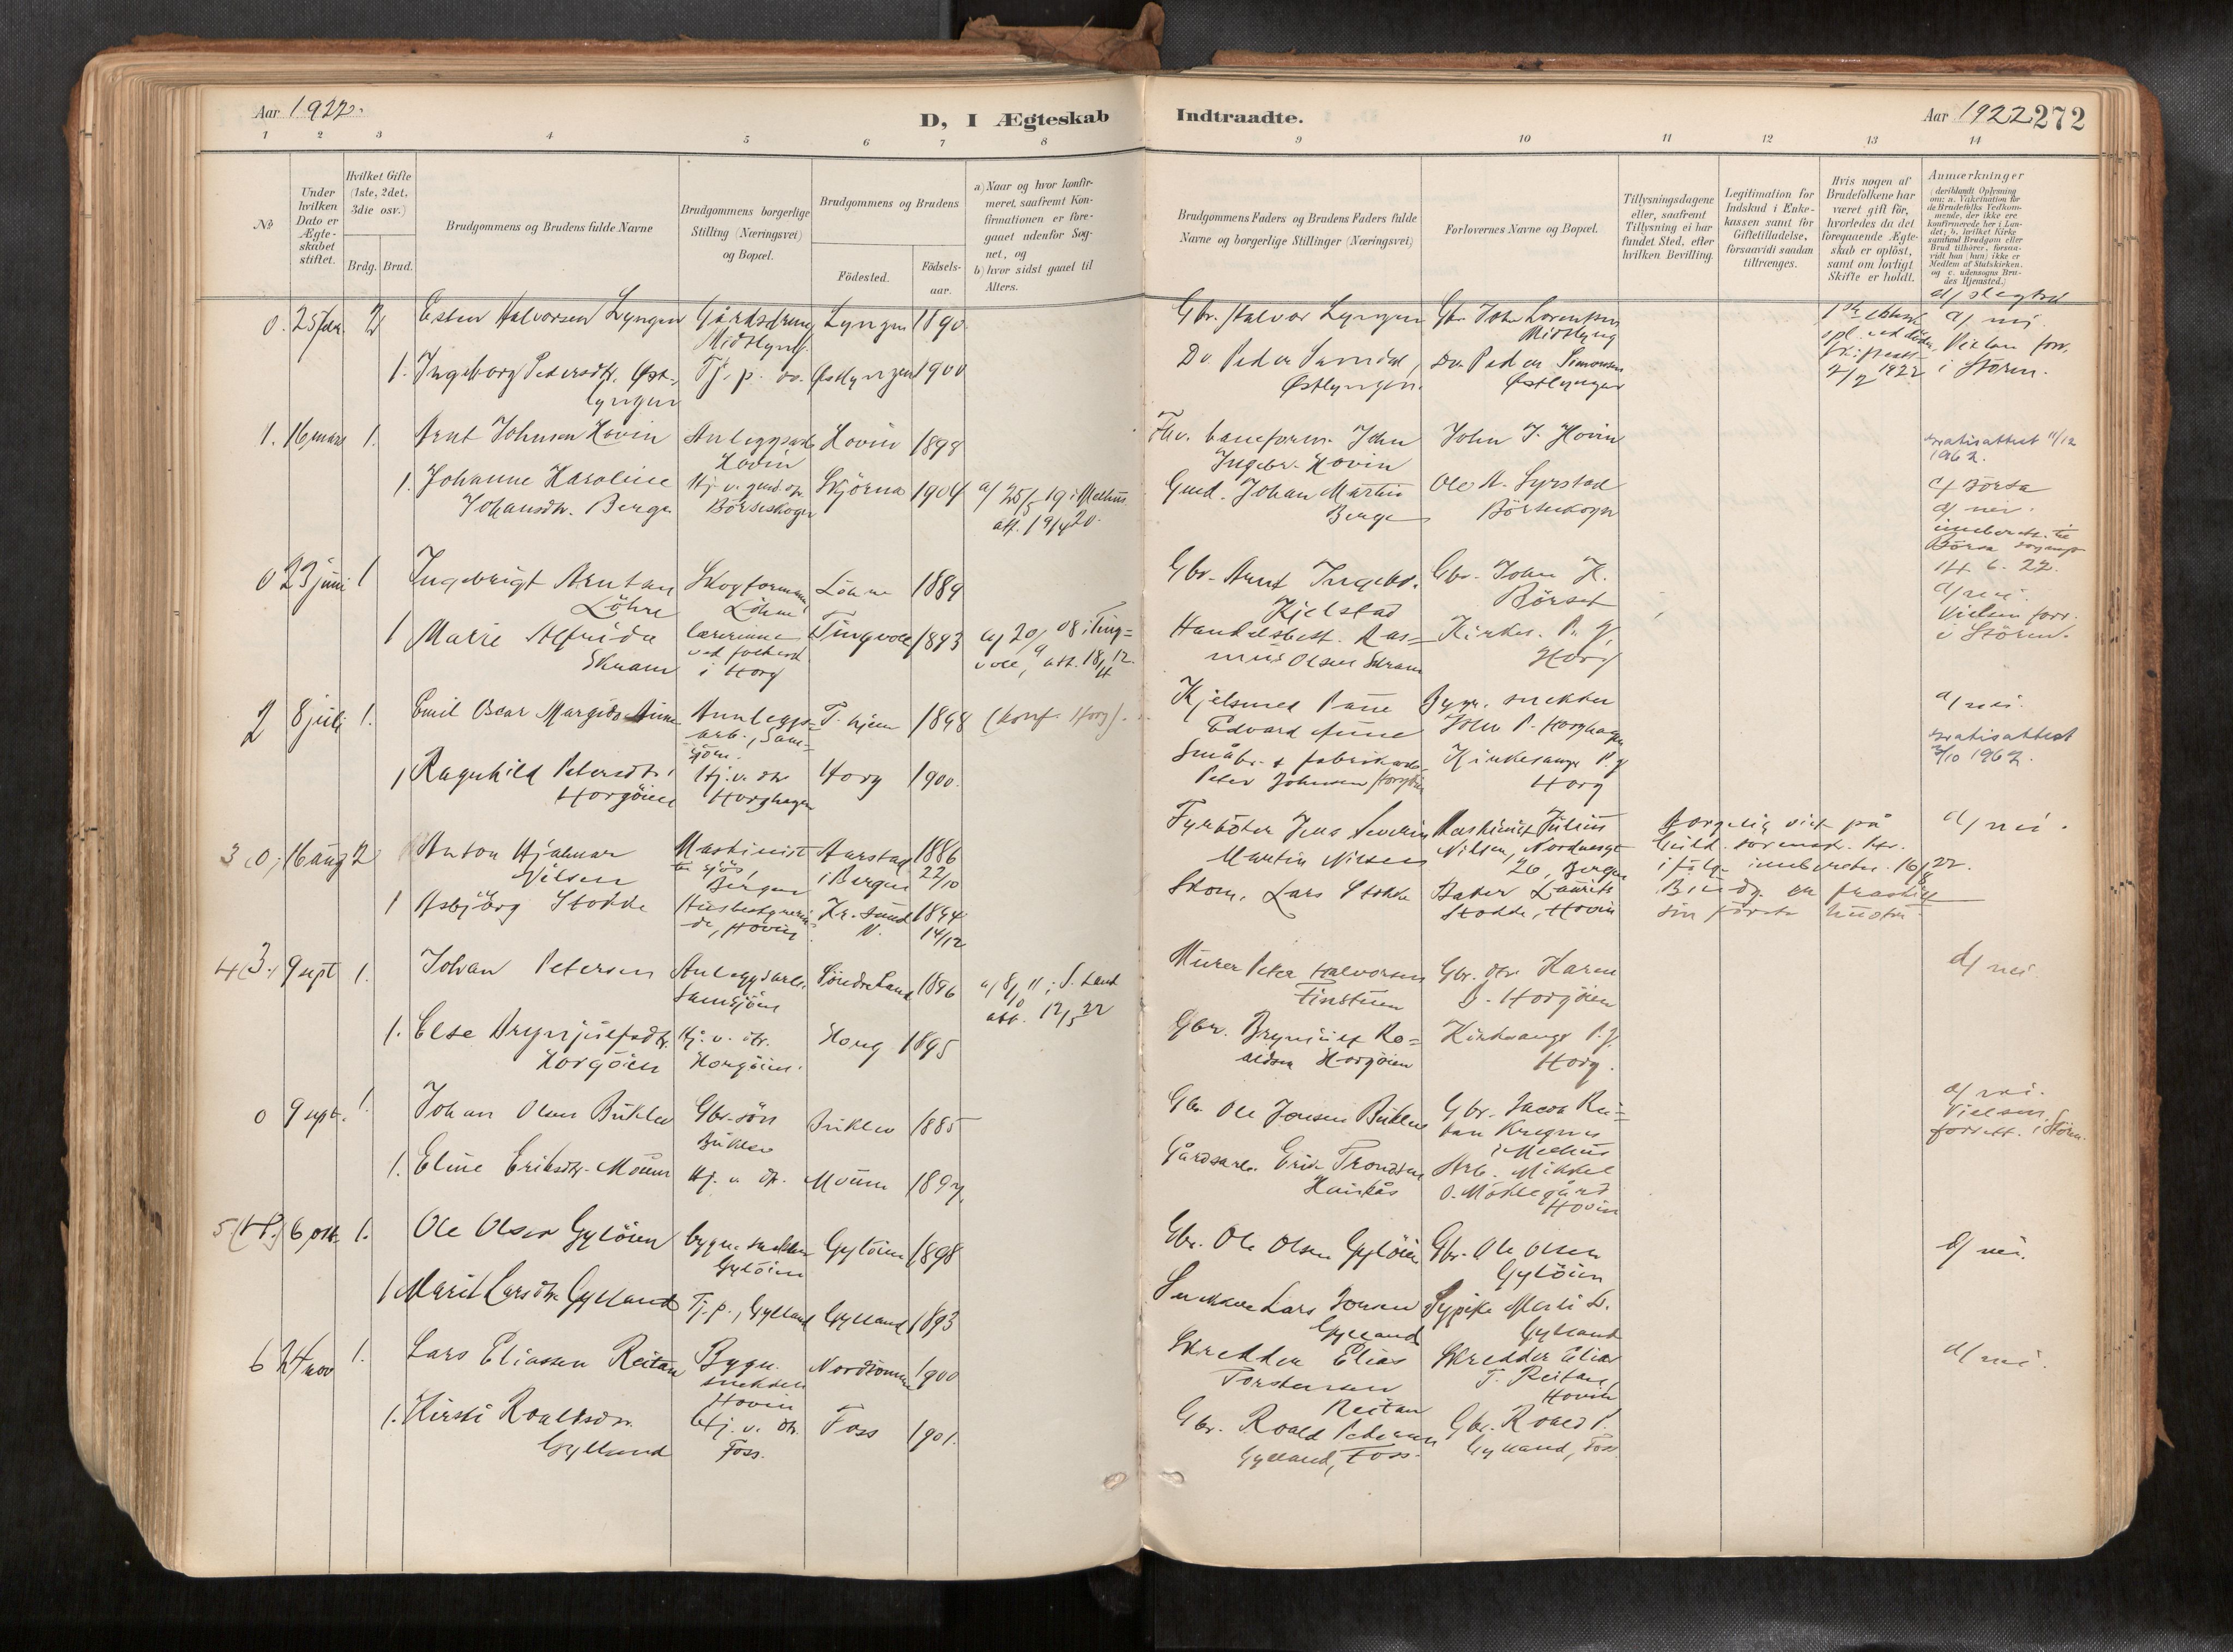 Aar 1922.
D, I Ægteskab Indtraadte.
Aar 1922 272
1 2 3 4 5 6 7 8 9 10 11 12 13 14
No
Under hvilken Dato er Ægteskabet stiftet.
Hvilket Gifte (1ste, 2det, 3die osv.)
Brdg. Brud.
Brudgommens og Brudens fulde Navne
Brudgommens borgerlige Stilling (Næringsvei) og Bopæl.
Brudgommens og Brudens
Födested.
Födsels-aar.
a) Naar og hvor konfir-
meret, saafremt Kon-
firmationen er fore-
gaaet udenfor Sog-
net, og
b) hvor sidst gaaet til
Alters.
Brudgommens Faders og Brudens Faders fulde
Navne og borgerlige Stillinger (Næringsvei)
Forlovernes Navne og Bopæl.
Tillysningsdagene
eller, saafremt
Tillysning ei har
fundet Sted, efter
hvilken Bevilling.
Legitimation for
Indskud i Enke-
kassen samt for
Giftetilladelse,
forsaavidt saadan
tiltrænges.
Hvis nogen af
Brudefolkene har
været gift för,
hvorledes da det
foregaaende Ægte-
skab er oplöst,
samt om lovligt
Skifte er holdt.
Anmærkninger
0. 25 febr. 2 Esten Halvorsen Lyngen Gårdsdreng Midtlyng. Lyngen 1890
Gbr. Halvor Lyngen
Gbr. John Lorentsen
Midtlyng
a/ nei.
Vielsen forr.
i Stören.
1. Ingeborg Petersdtr. Øst-
lyngen
Tj. p. do. Østlyngen 1900
Østlyngen
Do. Peder Simonsen
Østlyngen
1922
1. 16 mars 1. Arnt Johnsen Hovin Anleggsarb. Hovin Hovin 1898
baneform. John
Ingebr. Hovin
John J. Hovin
gratisattest 11/12
1962.
1. Johanne Karoline
Johansdtr. Berge
Börseskogn
1904
a/ 25/5 19 i Melhus
att. 19/4 20.
Gmd. Johan Martin
Berge
Ole A. Syrstad
Börseskogn
c/ Börsa
a/ nei.
14. 6. 22.
0 23 juni 1 Ingebrigt Arntsen
Löhre
Skogformann
1889
Gbr. Arnt Ingebr.
Kjelstad
Gbr. John H.
Börset
a/ nei.
Vielsen forr.
i Stören.
1 Marie Alfrida
Skram
lærerinne
ved folkesk.
i Horg
Tingvoll 1893
a/ 20/9 08 i Ting=
voll, att. 18/4 12.
Handelsbest. Ras=
mus Olsen Skram
Kirkes. P. J.
Horg
2 8 juli 1. Emil Oscar Margido Aune
Anleggs-
arb., Sam-
sjöen.
T. hjem 1898
(konf. Horg).
Edvard Aune
Bygn. snekker
John P. Horghagen
a/ nei.
gratisattest
3/10 1962.
1 Ragnhild Petersdtr.
Horgöien
Hj. v. dtr.
Horghagen
Horg 1900.
Småbr. & fabrikarb.
Peter Johnsen Horgöien
Kirkesanger P. J.
Horg
3 (0) 16 aug 2 Anton Hjalmar
Nilsen
Maskinist
til sjös,
Bergen
Aarstad
i Bergen
1886
22/10
Fyrböter Jens Severin
Martin Nilsen
Maskinist Julius
Nilsen, Nordnesgt
26, Bergen
Borgerlig viet på
Guld. sorensk. ktr.
i fölge innberetn. 16/8 22.
Brudg. er fraskilt
sin förste hustru.
a/ nei.
1 Asbjörg Stokke
Husbestyrerin-
de, Hovin
Kr. sund
N.
1894
14/12
Skom. Lars Stokke
Baker Laurits
Stokke, Hovin
4 (3.) 9 sept 1. Johan Petersen
Anleggsarb.
Samsjöen
Söndre Land 1896
a/ 8/10 11 i S. Land
att. 12/5 22
Murer Peter Halvorsen
Finstuen
Gbr. dtr. Karen
B. Horgöien
d/ nei.
1. Else Brynjulfsdtr.
Horgöien
Hj. v. dtr.
Horgöien.
Horg 1895
Gbr. Brynjulf Ro=
aldsen Horgöien
Kirkesanger P. J.
Horg.
0 9 sept. 1. Johan Olsen Buklev
Gbr. sön
Buklev
Buklev 1885
Gbr. Ole Jonsen Buklev
Gbr. Jacob Rei=
tan Kregnes
i Melhus
a/ nei.
Vielsen
forrett. i Stören.
1. Eline Eriksdtr. Moum
Hj. v. dtr. Moum 1897.
Gårdsarb. Erik Trondsen
Haukås
Arb. Mikkel
O. Möklegård
Hovin
5 (4.) 6 okt. 1. Ole Olsen Gylöien
bygn. snekker
Gylöien
Gylöien 1898
Gbr. Ole Olsen Gylöien
Gbr. Ole Olsen
Gylöien
d/ nei.
1 Marit Larsdtr. Gylland
Tj. p., Gylland Gylland 1893
Snekker Lars Jonsen
Gylland
Sypike Marli L.
Gylland
6 24 nov 1. Lars Eliassen Reitan
Bygn.
snekker
Hovin
1900
Skredder Elias
Torstensen
Reitan
Skredder Elias
T. Reitan,
Hovin
d/ nei.
1. Kirsti Roaldsdtr.
Gylland
Hj. v. dtr.
Foss.
Foss 1901.
Gbr. Roald Pedersen
Gylland, Foss.
Gbr. Roald P.
Gylland, Foss